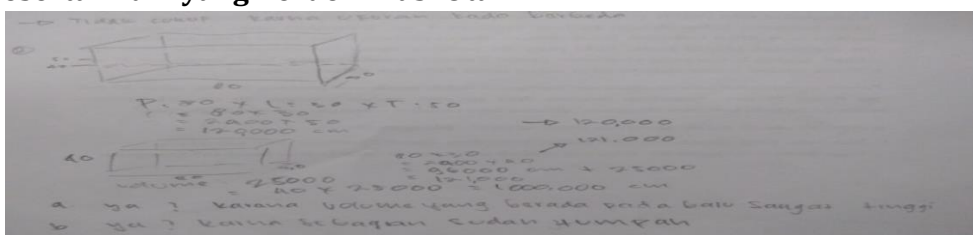 → Tidak cukup karna ukuran kado berbeda
②
80
P: 80 × L: 30 × T: 50
= 80 × 30
= 2400 × 50
= 120000 cm
→ 120,000
121.000
40
80 × 30
= 2400 × 40
= 96000 cm + 25000
= 121,000
volume 25000
= 40 × 25000 = 1000.000 cm
a ya ? karana volume yang berada pada balu sangat tinggi
b ya ? karna sebagian sudah tumpah